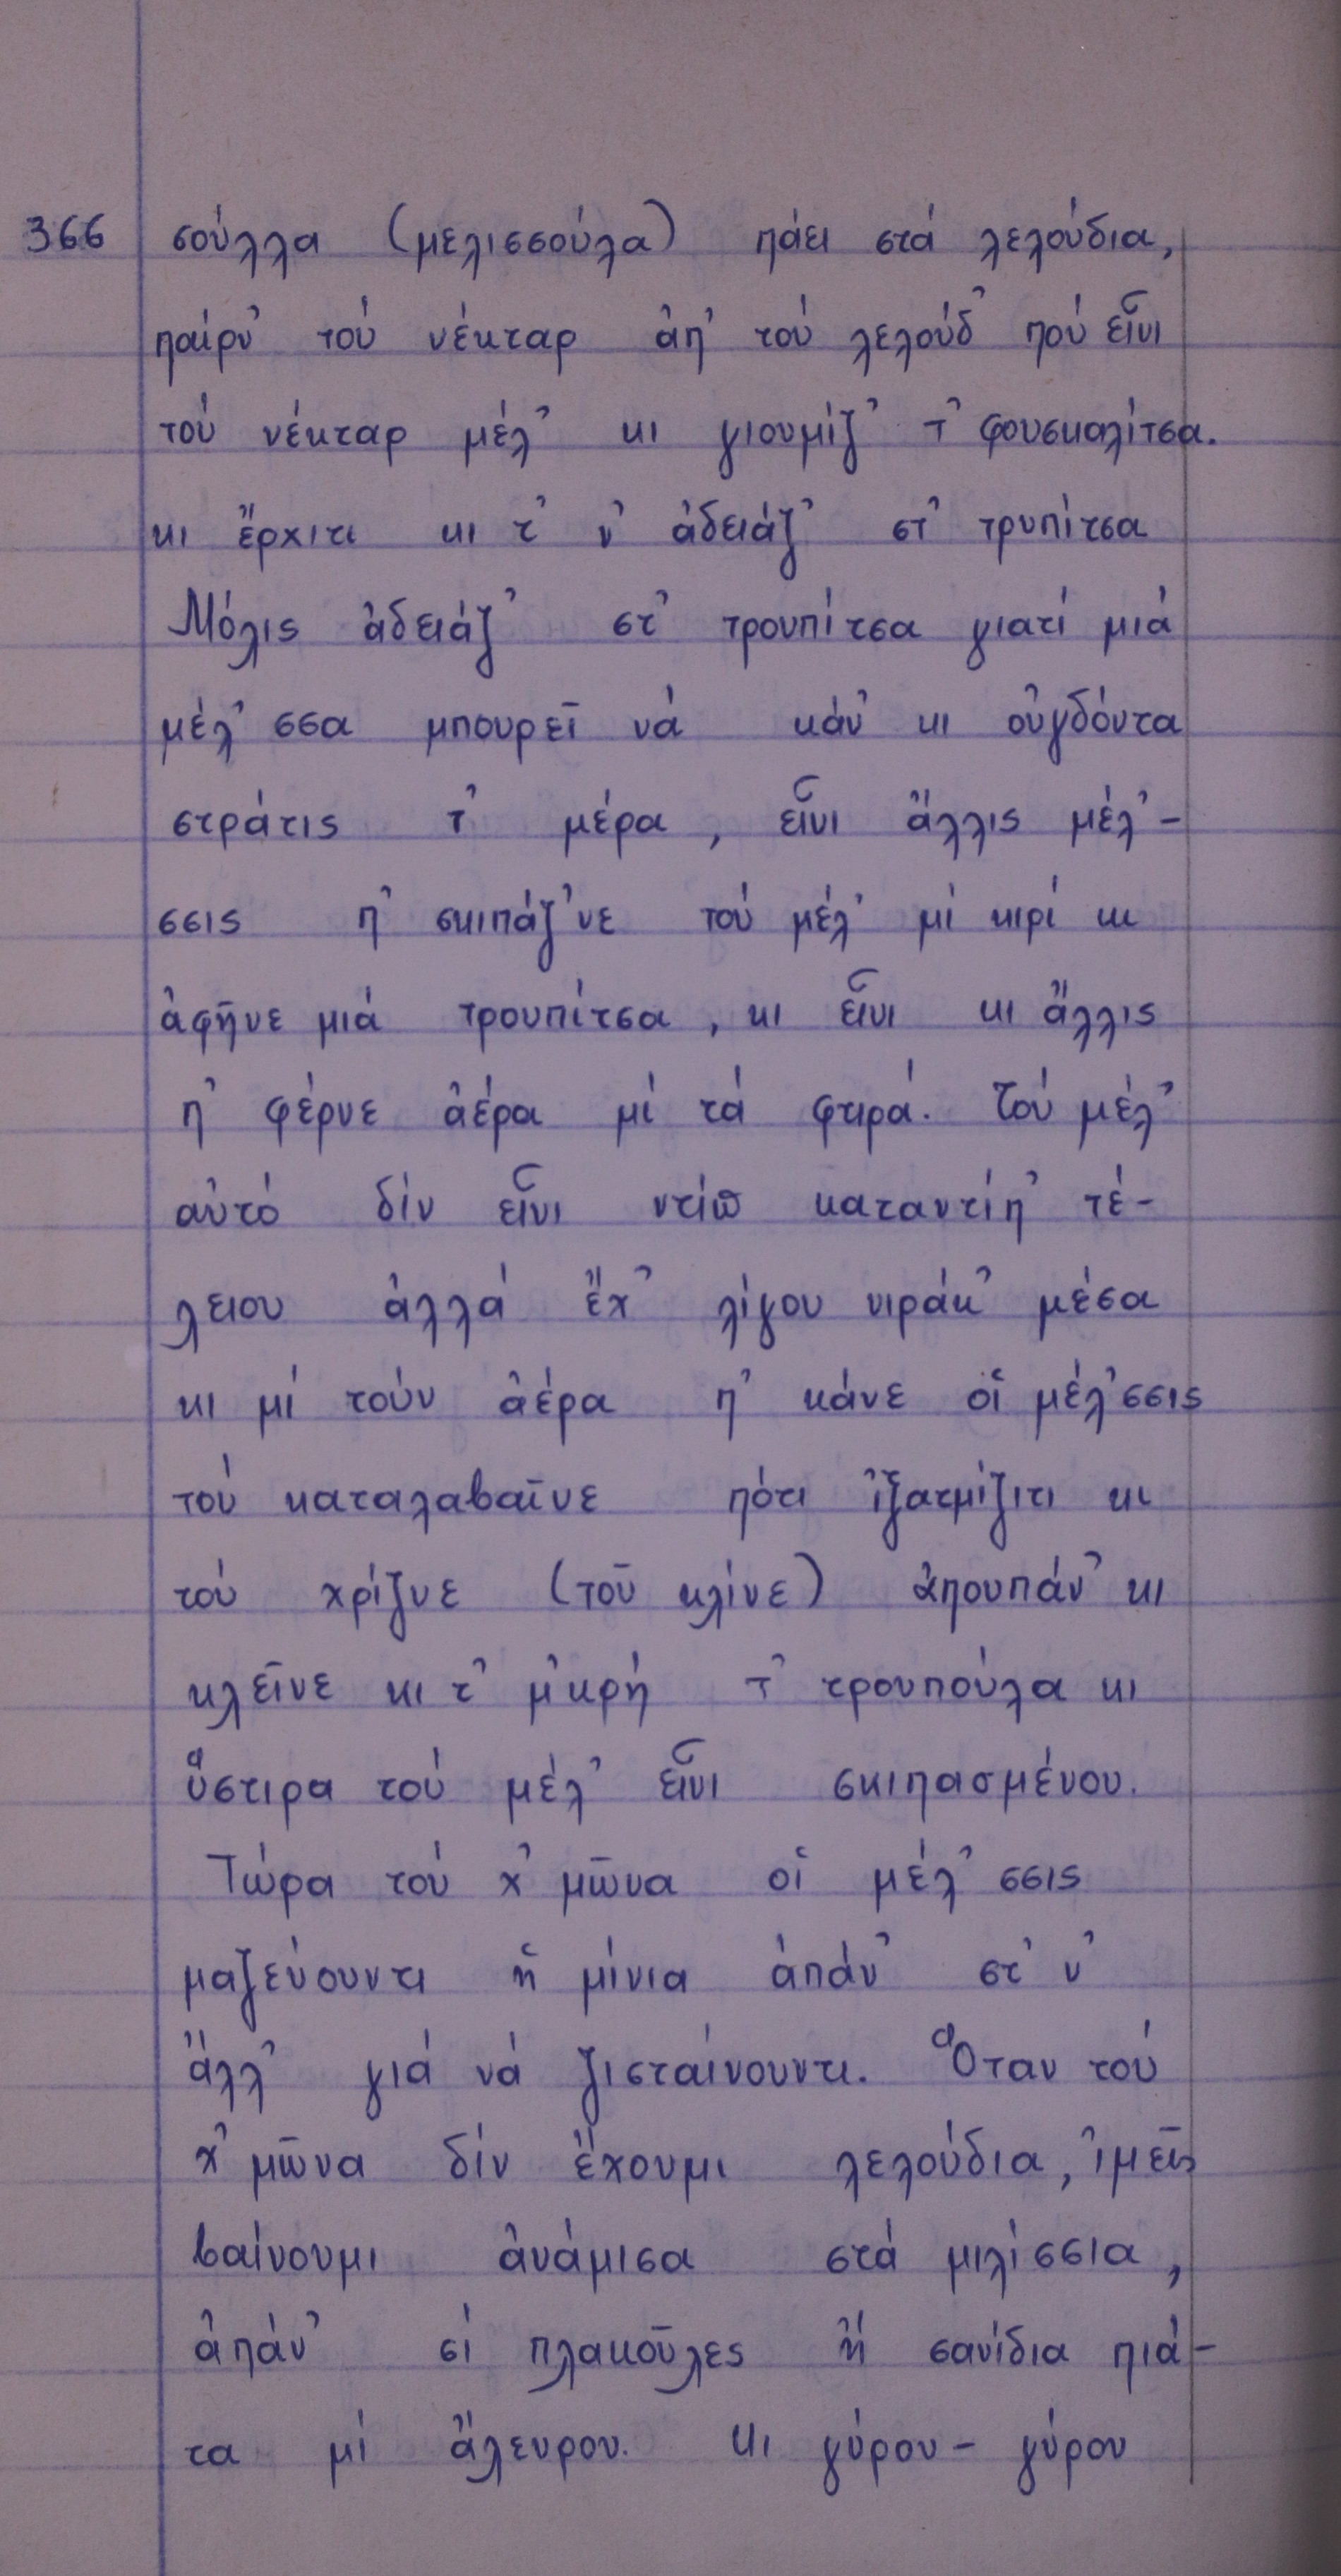 366 σούλλα (μελισσούλα) πάει στά λελούδια,
παίρν' τού νέκταρ ἀπ' τού λελούδ' πού εἶνι
τού νέκταρ μέλ' κι γιουμίζ' τ' φουσκαλίτσα.
κι ἔρχιτι κι τ' ν' ἀδειάζ' στ' τρυπίτσα
Μόλις ἀδειάζ' στ' τρουπίτσα γιατί μιά
μέλ' σσα μπουρεῖ νά κάν' κι οὐγδόντα
στράτις τ' μέρα, εἶνι ἄλλις μέλ'-
σσις π' σκιπάζ'νε τού μέλ' μί κιρί κι
ἀφῆνε μιά τρουπίτσα, κι εἶνι κι ἄλλις
π' φέρνε ἀέρα μί τά φτιρά. Τού μέλ'
αὐτό δίν εἶνι ντίπ καταντίπ' τέ-
λειου ἀλλά ἔχ' λίγου νιράκ' μέσα
κι μί τούν ἀέρα π' κάνε οἱ μέλ'σσις
τού καταλαβαῖνε πότι ἰξατμίζιτι κι
τού χρίζνε (τοῦ κλίνε) ἀπουπάν' κι
κλεῖνε κι τ' μ'κρή τ' τρουπούλα κι
ὕστιρα τού μέλ' εἶνι σκιπασμένου.
Τώρα τού χ' μῶνα οἱ μέλ' σσις
μαζεύουντι ἡ μίνια ἀπάν' στ' ν'
ἄλλ' γιά νά ζισταίνουντι. Ὅταν τού
χ' μῶνα δίν ἔχουμι λελούδια, ἰμεῖς
βαίνουμι ἀνάμισα στά μιλίσσια,
ἀπάν' σί πλακοῦλες ἤ σανίδια πιά-
τα μί ἄλευρου. Κι γύρου - γύρου